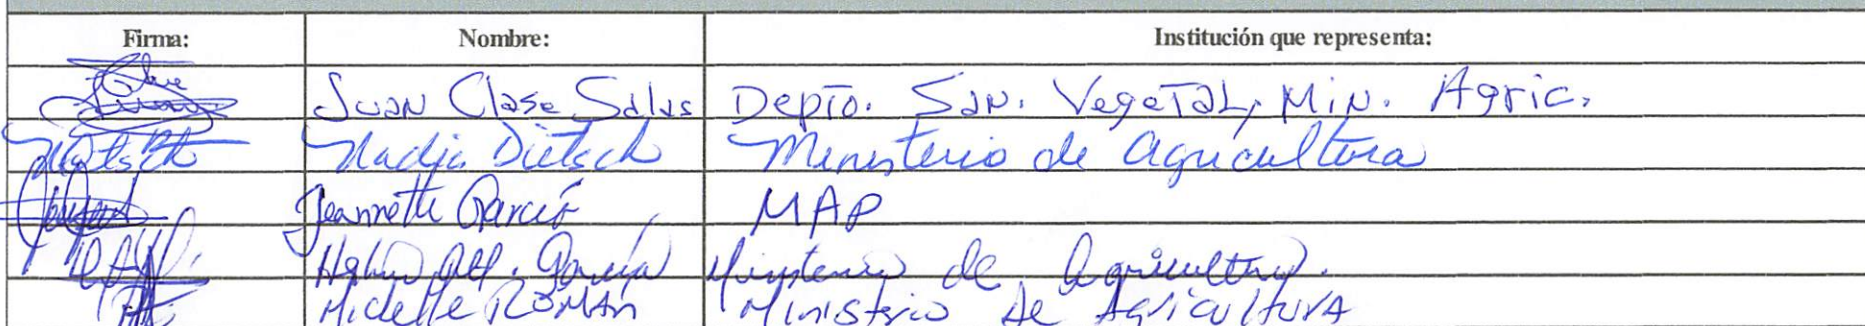 Firma: Nombre: Institución que representa:
Juan Clase Salas Depto. San. Vegetal, Min. Agric.
Nadja Dietsch Ministerio de Agricultura
Jeannette García MAP
García Ministerio de Agricultura.
Michelle ROMÁN Ministerio De Agricultura